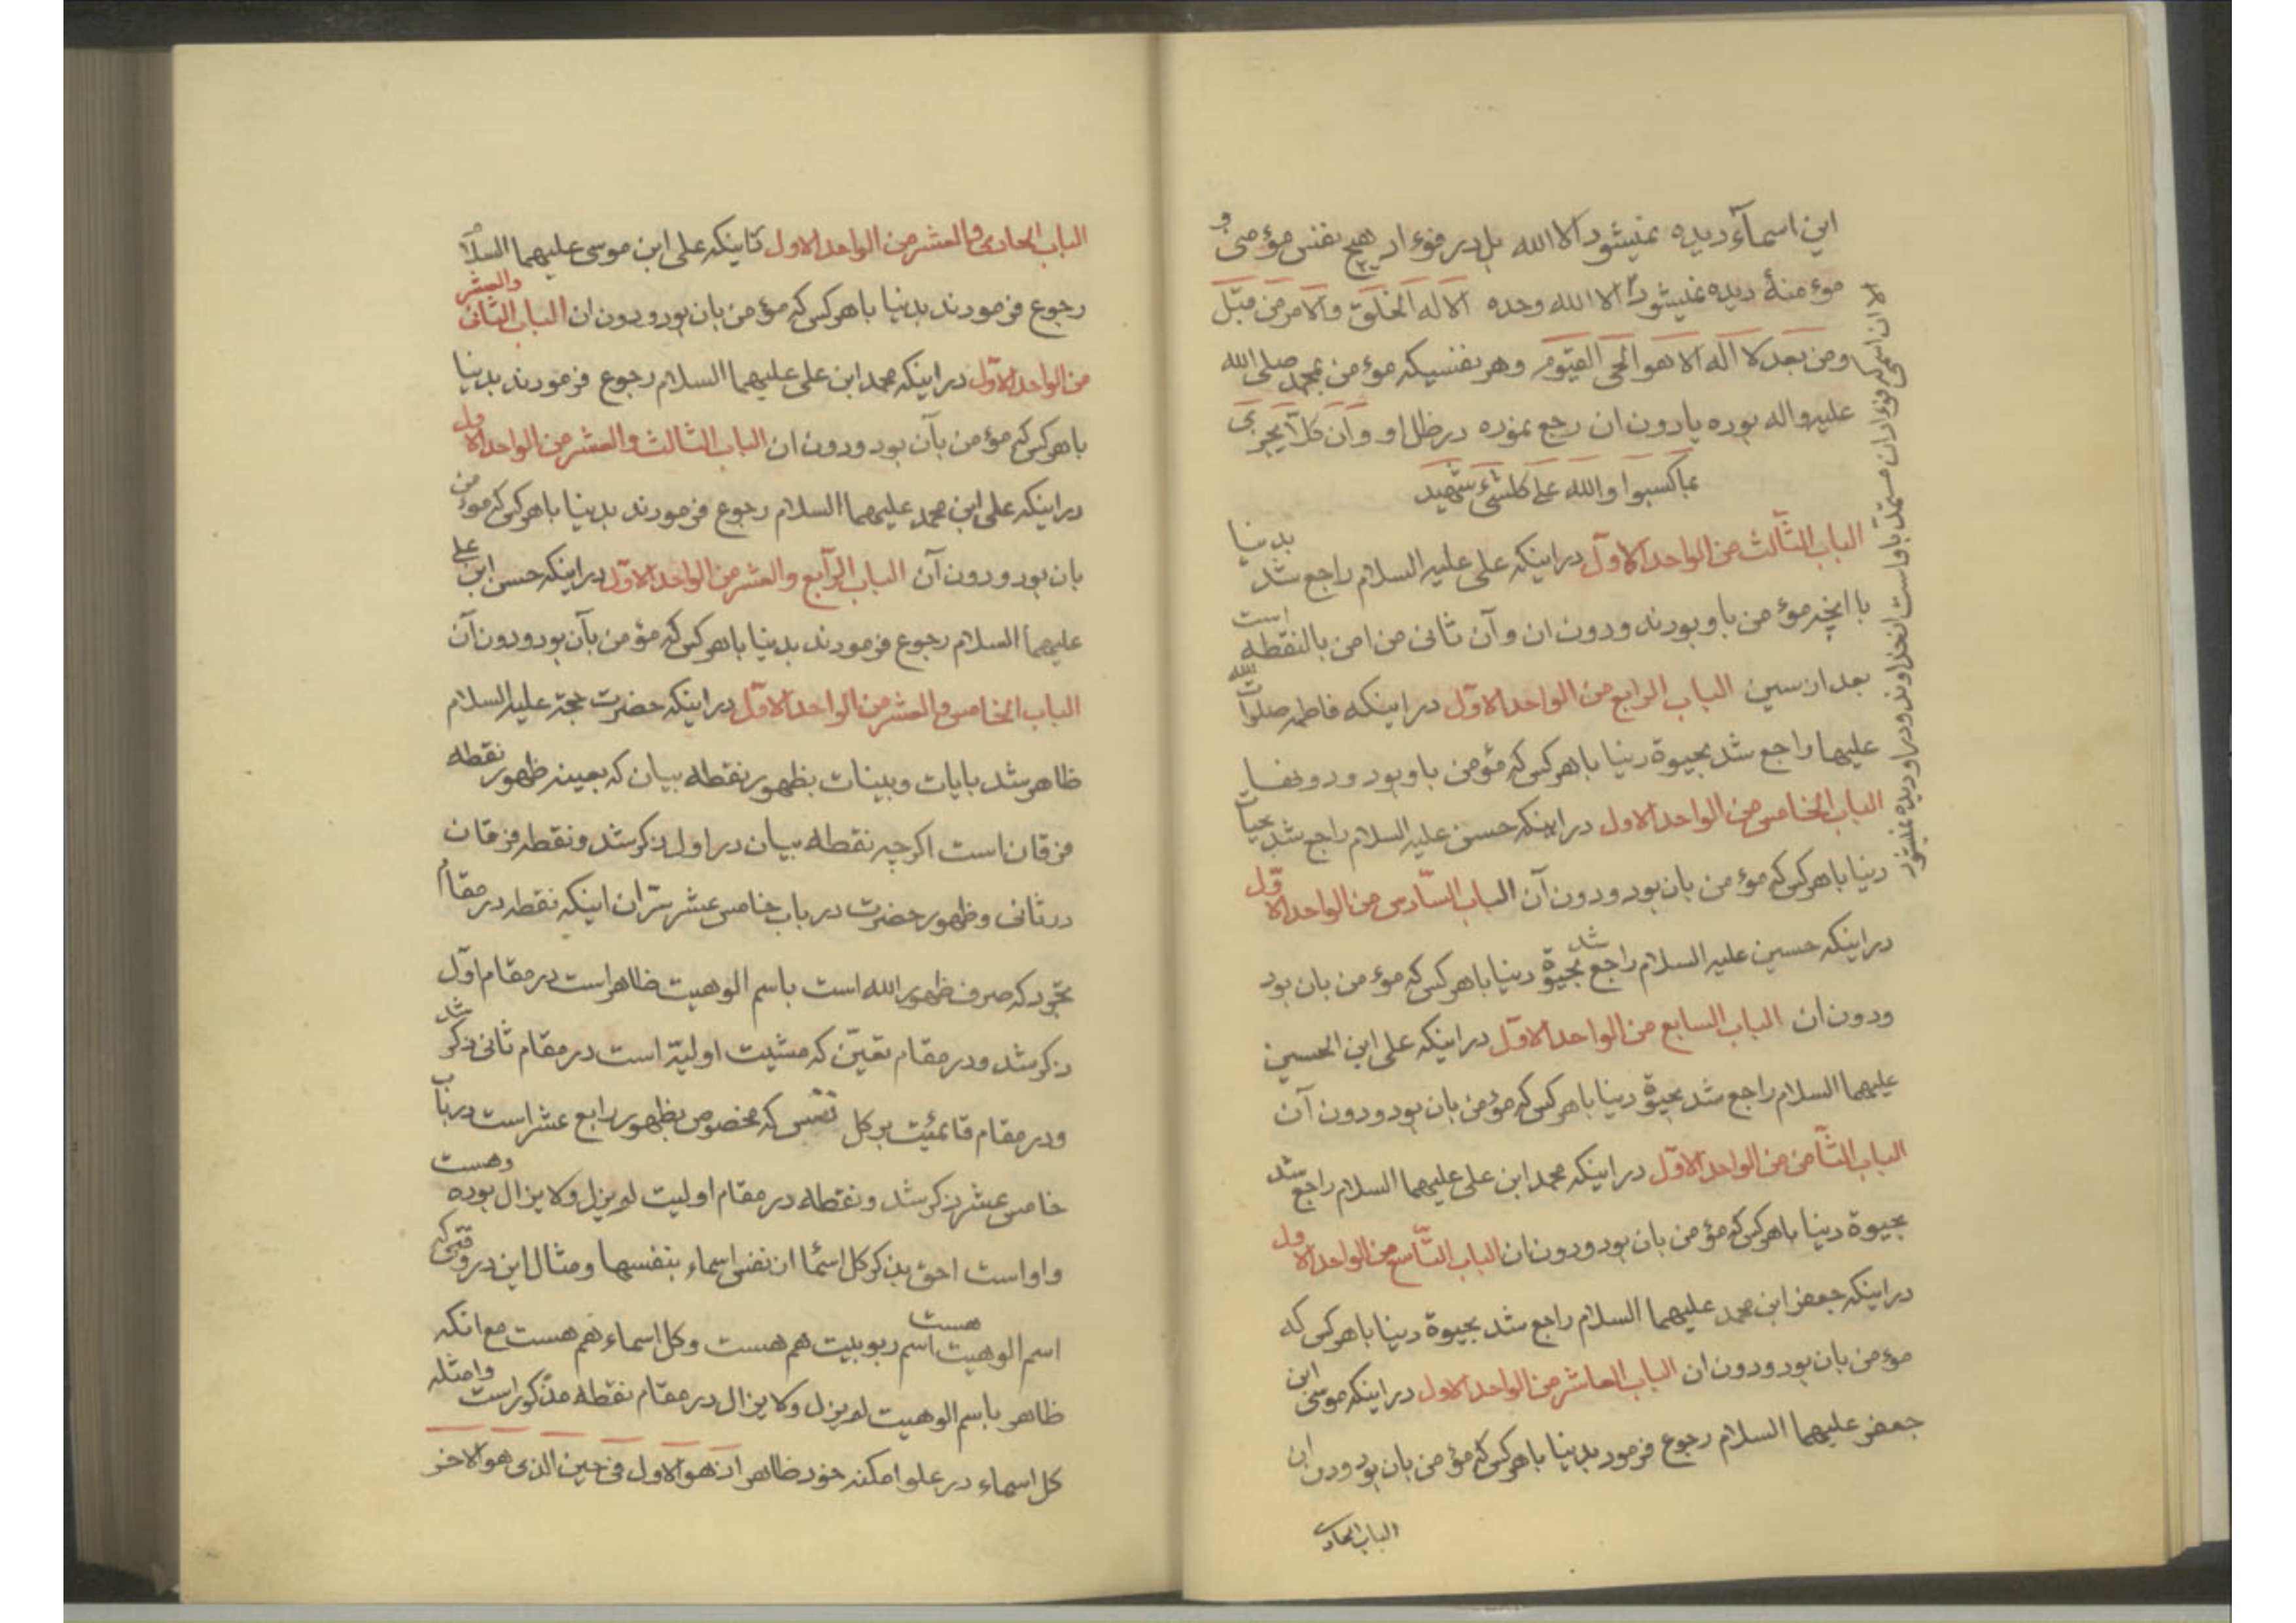 این اسماء دیده نمیشود الا الله بل در فؤاد هیچ نفس مؤمنی و
مؤمنهٔ دیده نمیشود الا الله وحده الا له الخلق والامر من قبل
ومن بعد لا اله الا هو الحی القیوم وهر نفسیکه مؤمن بمحمد صلی الله
علیه واله بوده یا دون ان رجع نموده در ظل او وان کلا یجزی
بما کسبوا والله علی کلشیء شهید
الباب الثالث من الواحد الاول در اینکه علی علیه السلام راجع شد بدنیا
با انچه مؤمن باو بودند ودون ان وآن ثانی من امن بالنقطه است
بعد از سین الباب الرابع من الواحد الاول در اینکه فاطمه صلوات الله
علیها راجع شد بحیوة دنیا با هر کس که مؤمن باو بود ودونها
الباب الخامس من الواحد الاول در اینکه حسن علیه السلام راجع شد بحیات
دنیا با هر کس که مؤمن بان بود ودون آن الباب السادس من الواحد الاول
در اینکه حسین علیه السلام راجع شد بحیوة دنیا با هر کس که مؤمن بان بود
ودون ان الباب السابع من الواحد الاول در اینکه علی ابن الحسین
علیهما السلام راجع شد بحیوة دنیا با هر کس که مؤمن بان بود ودون آن
الباب الثامن من الواحد الاول در اینکه محمد ابن علی علیهما السلام راجع شد
بحیوة دنیا با هر کس که مؤمن بان بود ودون ان الباب التاسع من الواحد الاول
در اینکه جعفر ابن محمد علیهما السلام راجع شد بحیوة دنیا با هر کس که
مؤمن بان بود ودون ان الباب العاشر من الواحد الاول در اینکه موسی ابن
جعفر علیهما السلام رجوع فرمود بدنیا با هر کس که مؤمن بان بود ودون ان
الباب الحادی
الباب الحادی والعشر من الواحد الاول تا اینکه علی ابن موسی علیهما السلام
رجوع فرمودند بدنیا با هر کس که مؤمن بان بود ودون ان الباب الثانی والعشر
من الواحد الاول در اینکه محمد ابن علی علیهما السلام رجوع فرمودند بدنیا
با هر کس که مؤمن بآن بود ودون ان الباب الثالث والعشر من الواحد الاول
در اینکه علی ابن محمد علیهما السلام رجوع فرمودند بدنیا با هر کس که مؤمن
بان بود ودون آن الباب الرابع والعشر من الواحد الاول در اینکه حسن ابن علی
علیهما السلام رجوع فرمودند بدنیا با هر کس که مؤمن بآن بود ودون آن
الباب الخامس والعشر من الواحد الاول در اینکه حضرت حجة علیه السلام
ظاهر شد بایات وبینات بظهور نقطه بیان که بعینه ظهور نقطه
فرقان است اگرچه نقطه بیان در اول ذکر شد ونقطه فرقان
در ثانی وظهور حضرت در باب خامس عشر سر ان اینکه نقطه در مقام
تجرد که صرف ظهور الله است باسم الوهیت ظاهر است در مقام اول
ذکر شد ودر مقام تعین که مشیت اولیة است در مقام ثانی ذکر شد
ودر مقام قائمیت بر کل نفس که مخصوص بظهور رابع عشر است در باب
خامس عشر ذکر شد ونقطه در مقام اولیت لم یزل ولا یزال بوده وهست
واو است احق بذکر کل اسما از نفس اسماء بنفسها ومثال این در وقتی که
اسم الوهیت هست اسم ربوبیت هم هست وکل اسماء هم هست مع انکه
ظاهر باسم الوهیت لم یزل ولا یزال در مقام نقطه مذکور است وامثله
کل اسماء در علو امکنه خود ظاهر اذ هو الاول فی حین الذی هو الاخر